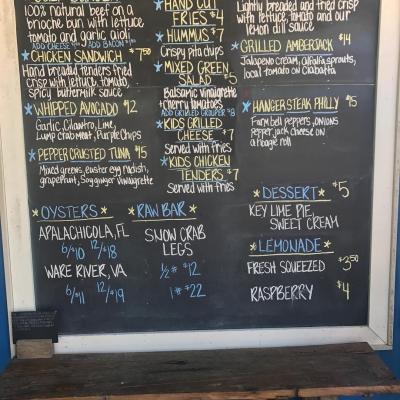 100% natural beef on a
brioche bun with lettuce
tomato and garlic aioli
ADD CHEESE ADD BACON
CHICKEN SANDWICH $7.50
Hand breaded tenders fried
crisp with lettuce, tomato,
spicy buttermilk sauce
WHIPPED AVOCADO $12
Garlic, Cilantro, Lime,
Lump Crab meat, Purple Chips
PEPPER CRUSTED TUNA $15
Mixed greens, easter egg radish,
grapefruit, Soy ginger vinaigrette
OYSTERS
APALACHICOLA, FL
6/$10 12/$18
WARE RIVER, VA
6/$11 12/$19
HAND CUT
FRIES $4
HUMMUS $7
Crispy pita chips
MIXED GREEN
SALAD $5
Balsamic vinaigrette
+ cherry tomatoes
ADD GRILLED GROUPER $8
KIDS GRILLED
CHEESE $7
Served with fries
KIDS CHICKEN
TENDERS $7
Served with fries
RAW BAR
SNOW CRAB
LEGS
1/2# $12
1# $22
Lightly breaded and fried crisp
with lettuce, tomato and our
lemon dill sauce
GRILLED AMBERJACK $14
Jalapeno cream, alfalfa sprouts,
local tomato on Ciabatta
HANGER STEAK PHILLY $15
Farm bell peppers, onions
pepper jack cheese on
a hoagie roll
DESSERT $5
KEY LIME PIE,
SWEET CREAM
LEMONADE
FRESH SQUEEZED $3.50
RASPBERRY $4